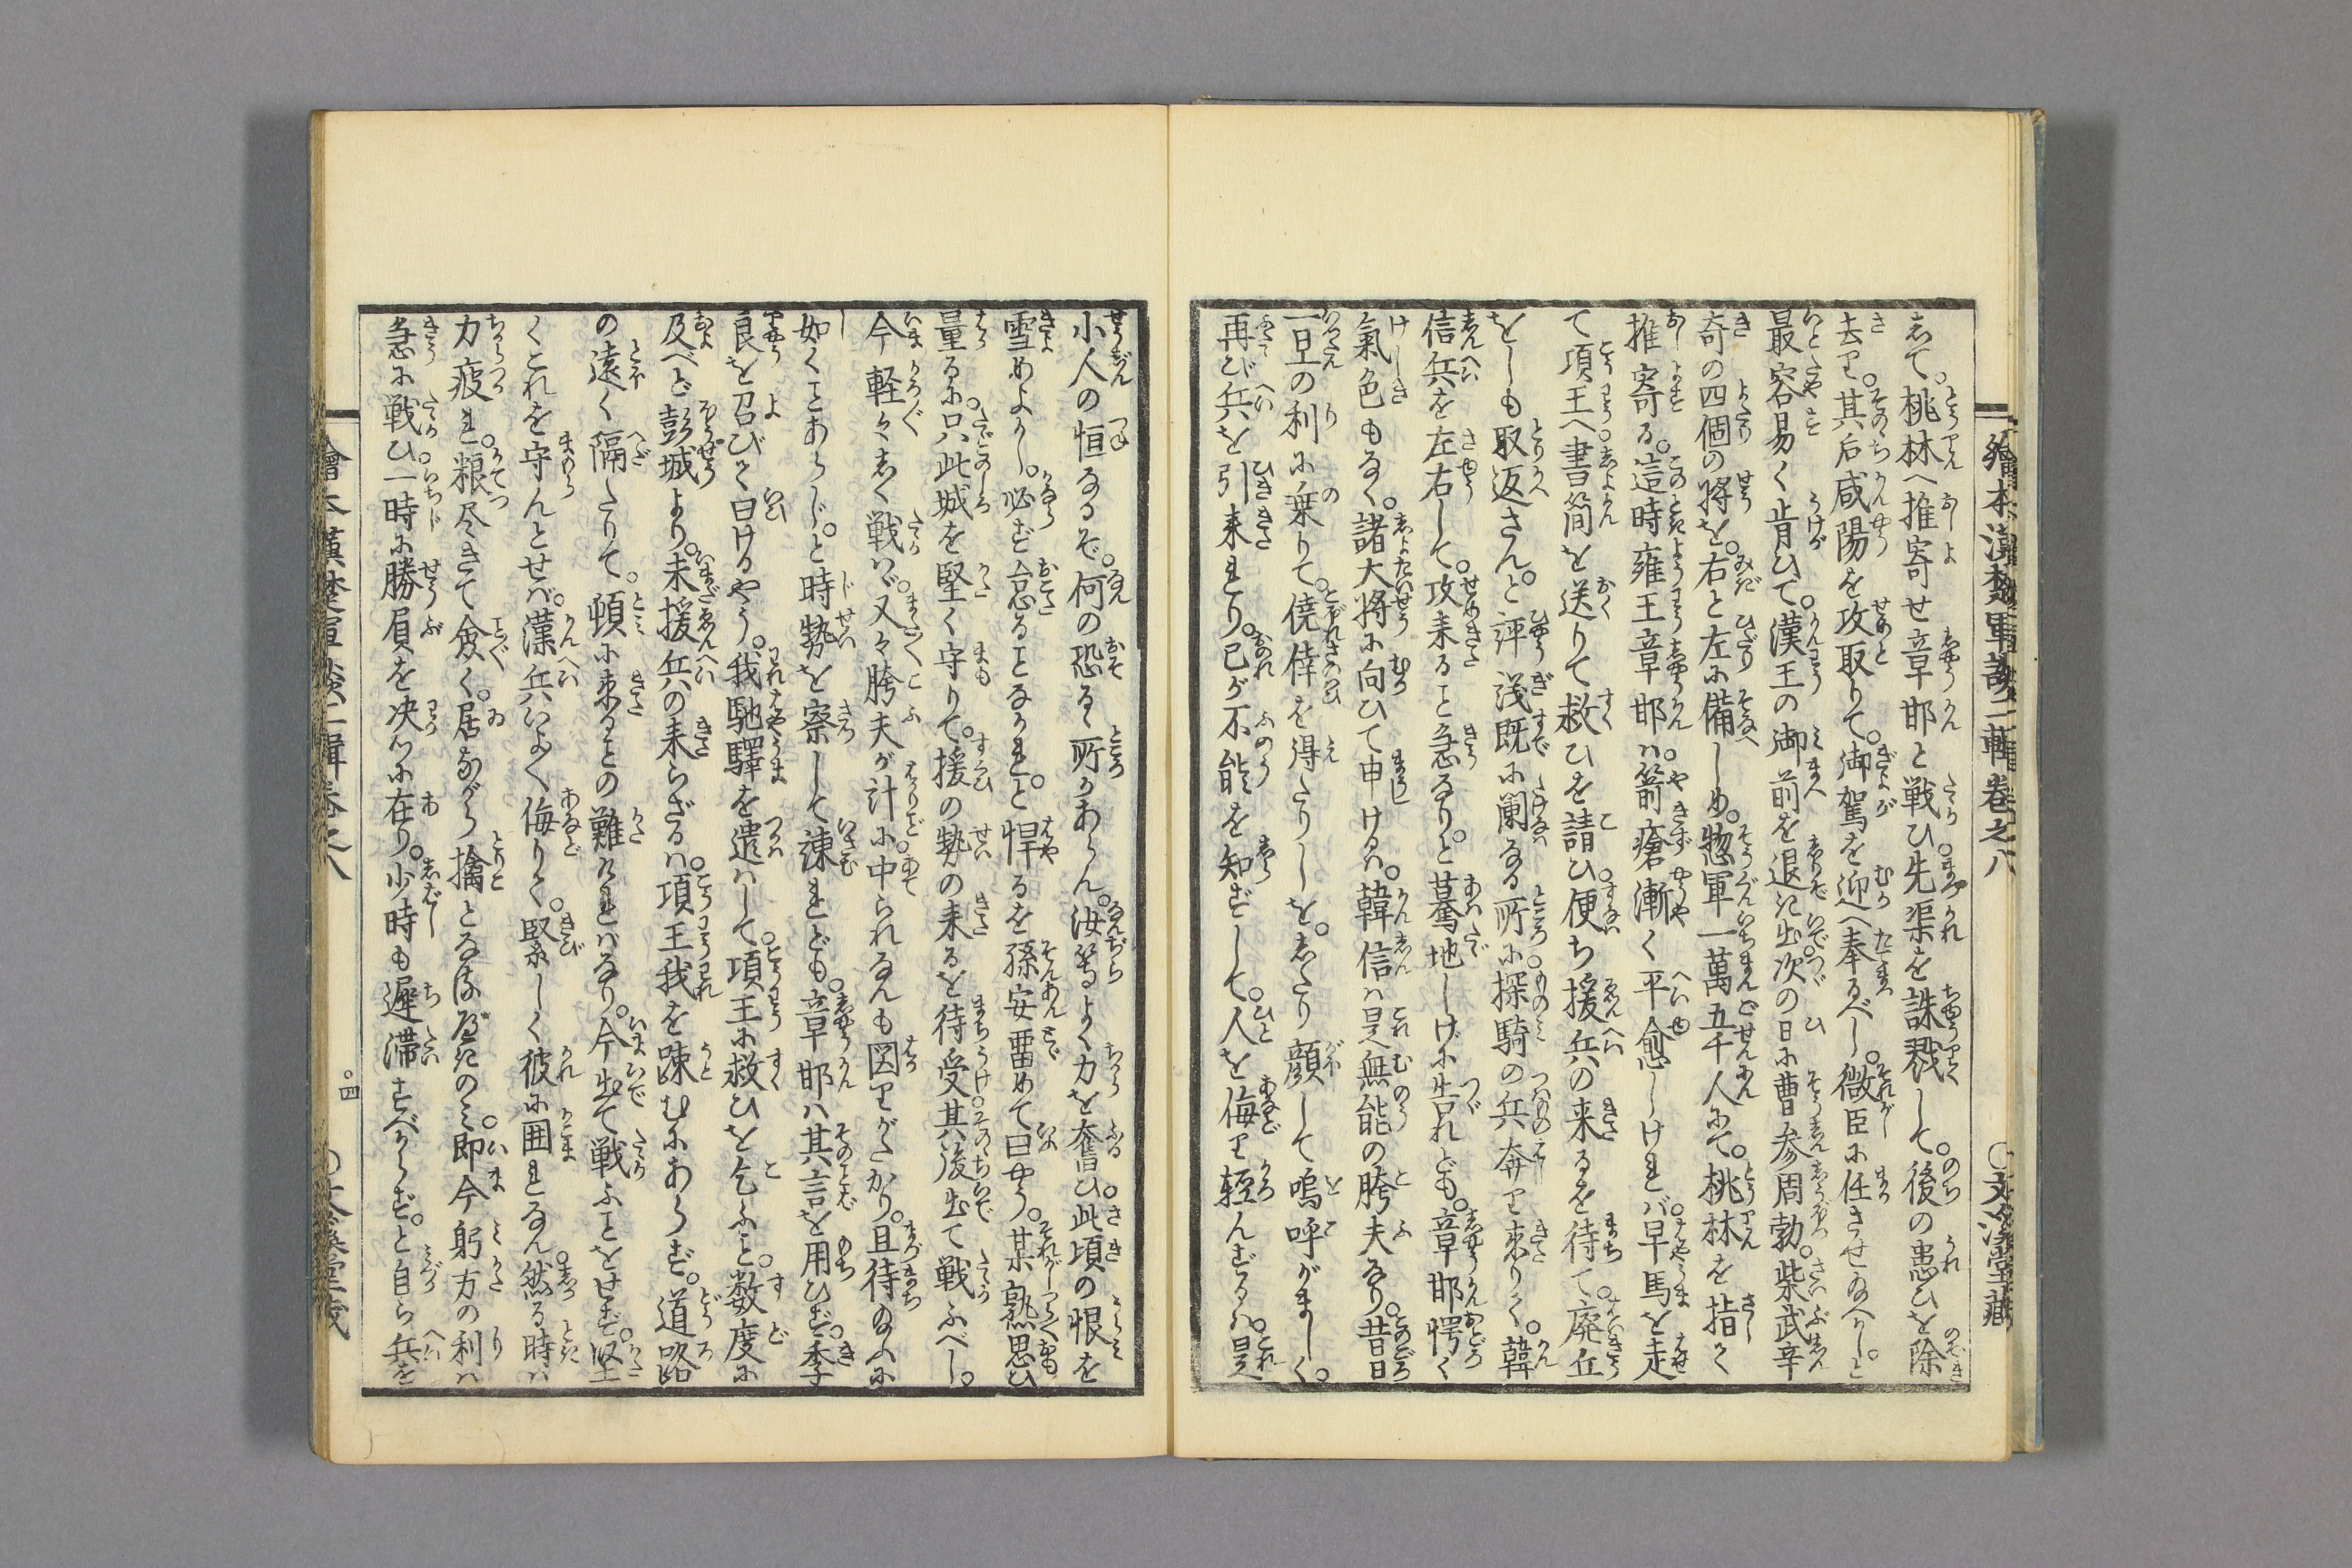 繪本漢楚軍談二輯卷之八 〇文溪堂藏
して。桃林へ推寄せ章邯と戦ひ。先渠を誅戮して。後の患ひを除
去り。其后咸陽を攻取りて。御駕を迎へ奉るべし。微臣に任させ給へかし。と
最容易く肯ひて。漢王の御前を退き出。次の日に曹参周勃。柴武辛
奇の四個の将を。右と左に備へしめ。惣軍一萬五千人にて。桃林を指て
推寄る。這時雍王章邯ハ。箭瘡漸く平愈しけれバ。早馬を走
て項王へ書簡を送りて救ひを請ひ。便ち援兵の来るを待て。廃丘
をしも取返さん。と評議既に闌なる所に。探騎の兵奔り来りて。韓
信兵を左右して。攻来ること急なり。と驀地しげに告れども。章邯愕く
氣色もなく。諸大将に向ひて申けるハ。韓信ハ是無能の胯夫なり。昔日
一旦の利に乗りて。僥倖を得たりしを。したり顔して嗚呼がましく。
再び兵を引来れり。己が不能を知ずして。人を侮り軽んずるハ。是
小人の恒なるぞ。何の恐るゝ所かあらん。汝等よく力を奮ひ。此頃の恨を
雪めよかし。必ず怠ることなかれ。と悍るを孫安畱めて曰やう。某熟思ひ
量るに。只此城を堅く守りて。援の勢の来るを待受。其後出て戦ふべし。
今軽々しく戦ハゞ。又々胯夫が計に中られなんも図りがたかり。且待給ふに
如くことあらじ。と時勢を察して諫れども。章邯ハ其言を用ひず。季
良を召びて曰けるやう。我馳驛を遣ハして。項王に救ひを乞ふこと。数度に
及べど彭城より。未援兵の来らざるハ。項王我を疎むにあらず。道路
の遠く隔たりて。頓に来ることの難けれバなり。今出て戦ふことをせず。堅
くこれを守んとせバ。漢兵いよゝ侮りて。緊しく彼に囲れなん。然る時ハ
力疲れ。粮尽きて僉く。居ながら擒となるべきのミ。即今躬方の利ハ
急に戦ひ。一時に勝負を决るに在り。少時も遅滞すべからず。と自ら兵を
繪本漢楚軍談二輯卷之八 〇四 〇文溪堂藏